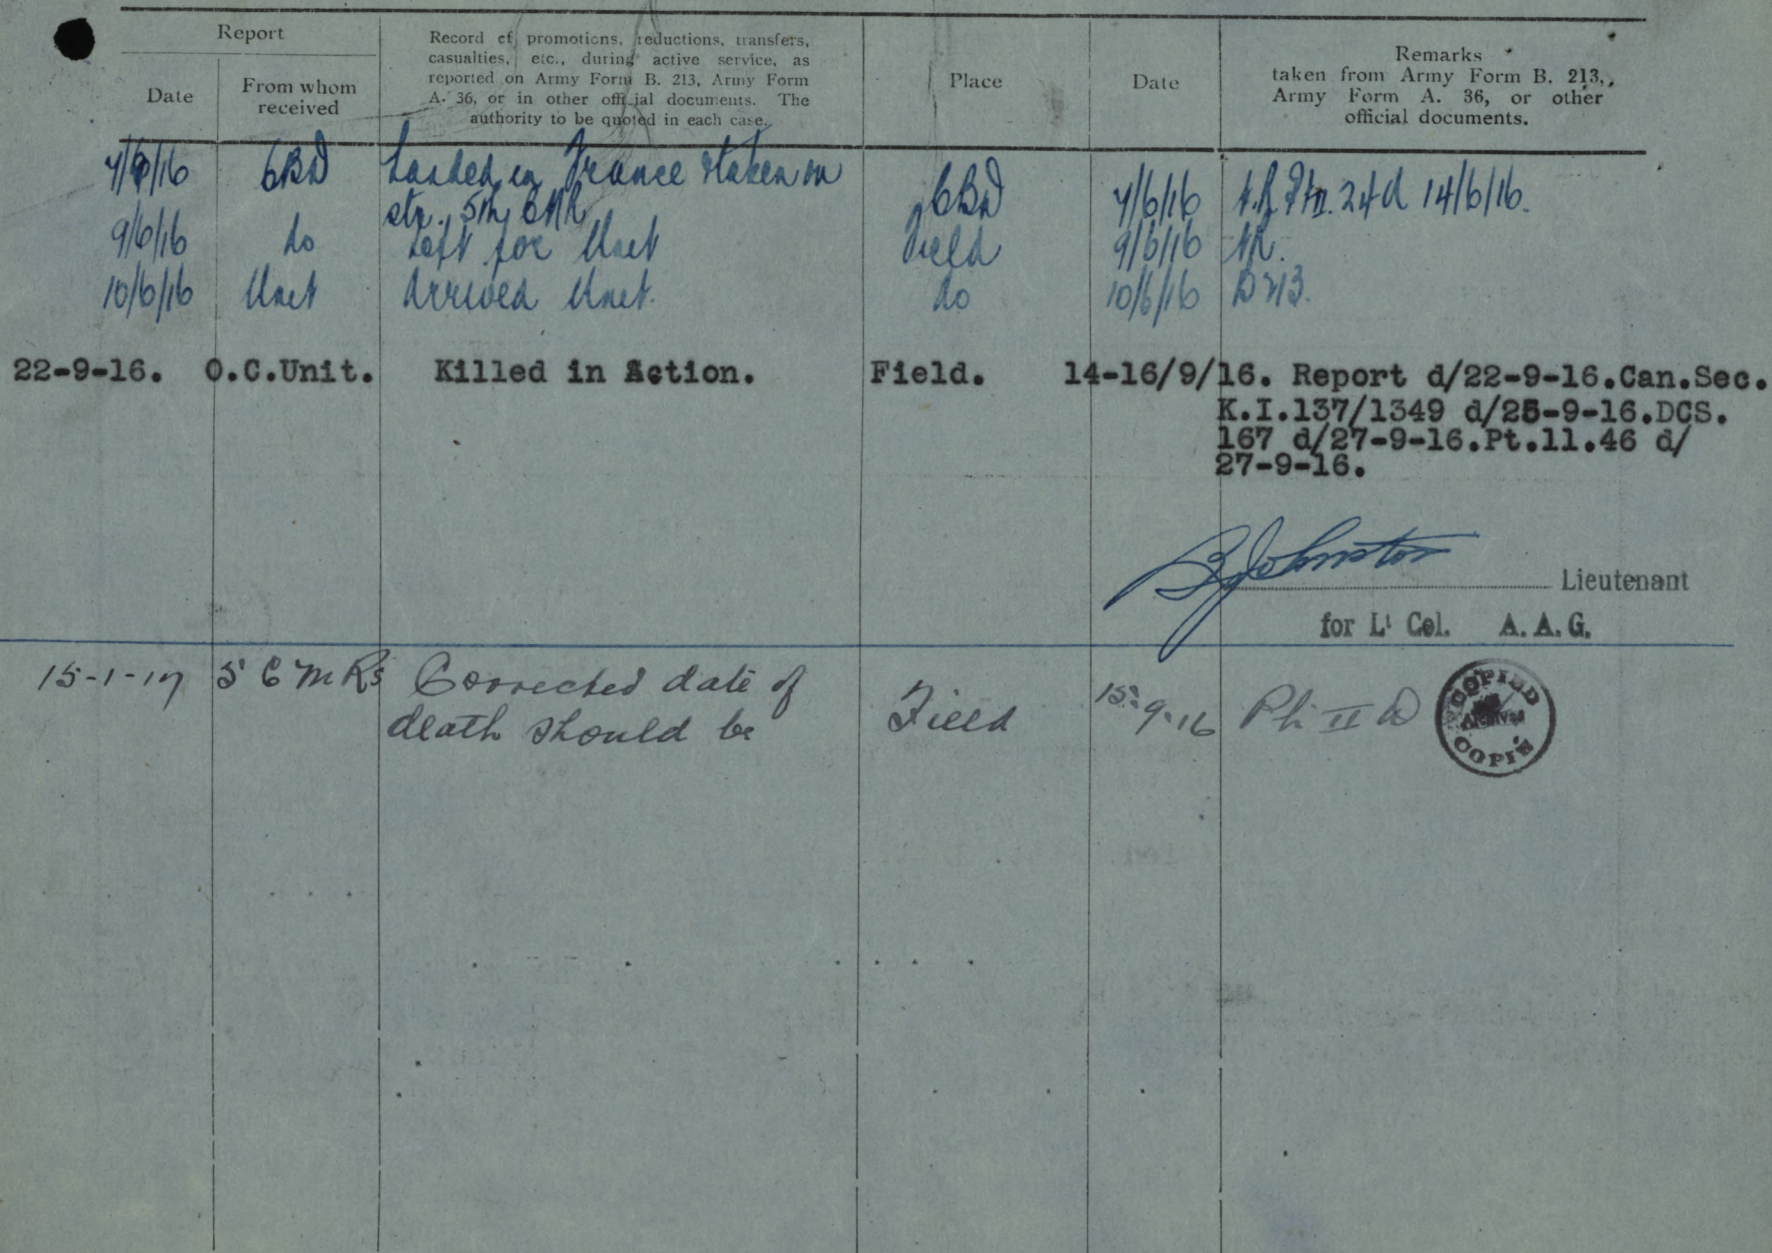 Report
Date
From whom
received
Record of promotions, reductions, transfers,
casualties, etc., during active service, as
reported on Army Form B. 213, Army Form
A. 36, or in other official documents. The
authority to be quoted in each case.
Place
Date
Remarks
taken from Army Form B. 213,
Army Form A. 36, or other
official documents.
7/6/16 CBD Landed in France & taken on
str. 5th CMR CBD 7/6/16 24d 14/6/16.
9/6/16 do Left for Unit Field 9/6/16 NR.
10/6/16 Unit Arrived Unit. do 10/6/16 B213.
22-9-16. O.C.Unit. Killed in Action. Field. 14-16/9/16. Report d/22-9-16.Can.Sec.
K.I.137/1349 d/25-9-16.DCS.
167 d/27-9-16.Pt.11.46 d/
27-9-16.
Johnston Lieutenant
for Lt Col. A.A.G.
15-1-17 5 C M Rs Corrected date of
death should be Field 15.9.16 Pt. II D
COPIED
Archives
COPIÉ